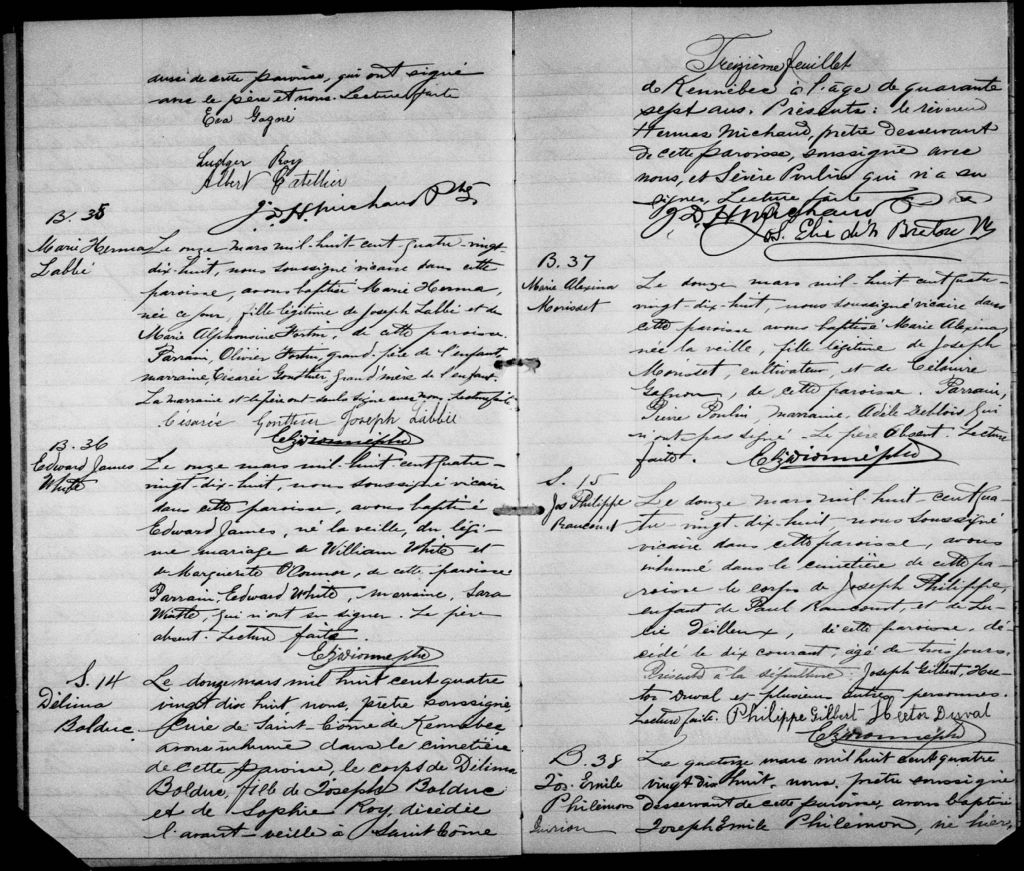 aussi de cette paroisse, qui ont signé
avec le père et nous. Lecture faite
Eva Gagné
Ludger Roy
Albert Catellier
J. D. H. Michaud Ptre
B. 35
Marie Herma
Labbé
Le onze mars mil huit cent quatre-vingt-
dix-huit, nous soussigné vicaire dans cette
paroisse, avons baptisé Marie Herma,
née ce jour, fille légitime de Joseph Labbé et de
Marie Alphonsine Fortin, de cette paroisse.
Parrain, Olivier Fortin, grand-père de l'enfant,
marraine, Césarée Gonthier, grand'mère de l'enfant.
La marraine et le père ont seuls signé avec nous. Lecture faite
Césarée Gonthier Joseph Labbé
B. 36
Edward James
White
Le onze mars mil huit cent quatre-
vingt-dix-huit, nous soussigné vicaire
dans cette paroisse, avons baptisé
Edward James, né la veille, du légi-
me mariage de William White et
de Marguerite O'Connor, de cette paroisse
Parrain Edward White, marraine, Sara
White, qui n'ont su signer. Le père
absent. Lecture faite.
S. 14
Délima
Bolduc
Le douze mars mil huit cent quatre
vingt dix huit nous, prêtre soussigné
Curé de Saint-Côme de Kennebec
avons inhumé dans le cimetière
de cette paroisse, le corps de Délima
Bolduc, fille de Joseph Bolduc
et de Sophie Roy, décédée
l'avant veille à Saint Côme
Treizième feuillet
de Kennebec à l'âge de quarante
sept ans. Présents: le révérend
Hermas Michaud, prêtre desservant
de cette paroisse, soussigné avec
nous, et Sévère Poulin qui n'a su
signer, Lecture faite
J. D. H. Michaud Ptre
B. 37
Marie Alexina
Morisset
Le douze mars mil-huit cent quatre-
vingt-dix-huit, nous soussigné vicaire dans
cette paroisse avons baptisé Marie Alexina,
née la veille, fille légitime de Joseph
Morisset, cultivateur, et de Célanire
Gagnon, de cette paroisse. Parrain,
Pierre Poulin marraine Adèle Deblois qui
n'ont pas signé. Le père Absent. Lecture
faite.
S. 15
Jos Philippe
Rancourt
Le douze mars mil huit cent qua-
tre vingt-dix-huit, nous soussigné
vicaire dans cette paroisse, avons
inhumé dans le cimetière de cette pa-
roisse le corps de Joseph Philippe,
enfant de Paul Rancourt, et de Lu-
cie Veilleux, de cette paroisse, dé-
cédé le dix courant, agé de trois jours.
Présents à la sépulture: Joseph Gilbert, Hec-
tor Duval et plusieurs autres personnes.
Lecture faite. Philippe Gilbert Hector Duval
B. 38
Jos. Emile
Philémon
Le quatorze mars mil huit cent quatre
vingt dix huit, nous, prêtre soussigné
desservant de cette paroisse, avons baptisé
Joseph Emile Philémon, né hier,